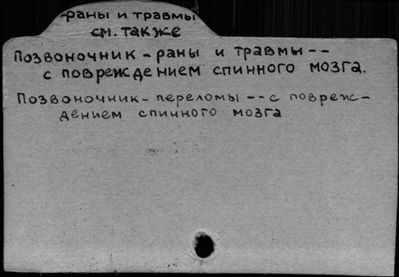 -раны и травмы
см. также
Позвоночник - раны и травмы --
с повреждением спинного мозга.
Позвоночник - переломы -- с повреж-
дением спинного мозга